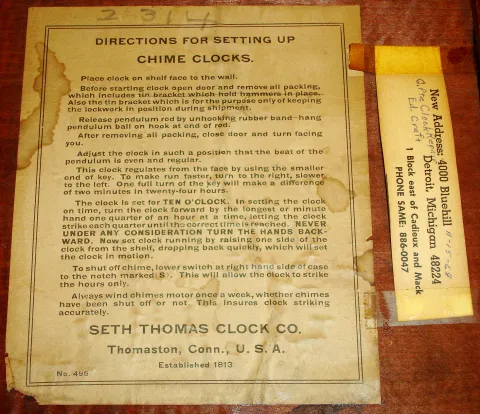 2314
DIRECTIONS FOR SETTING UP
CHIME CLOCKS.
Place clock on shelf face to the wall.
Before starting clock open door and remove all packing,
which includes tin bracket which hold hammers in place.
Also the tin bracket which is for the purpose only of keeping
the lockwork in position during shipment.
Release pendulum rod by unhooking rubber band—hang
pendulum ball on hook at end of rod.
After removing all packing, close door and turn facing
you.
Adjust the clock in such a position that the beat of the
pendulum is even and regular.
This clock regulates from the face by using the smaller
end of key. To make run faster, turn to the right, slower
to the left. One full turn of the key will make a difference
of two minutes in twenty-four hours.
The clock is set for TEN O'CLOCK. In setting the clock
on time, turn the clock forward by the longest or minute
hand one quarter of an hour at a time, letting the clock
strike each quarter until the correct time is reached. NEVER
UNDER ANY CONSIDERATION TURN THE HANDS BACK-
WARD. Now set clock running by raising one side of the
clock from the shelf, dropping back quickly, which will set
the clock in motion.
To shut off chime, lower switch at right hand side of case
to the notch marked S. This will allow the clock to strike
the hours only.
Always wind chimes motor once a week, whether chimes
have been shut off or not. This insures clock striking
accurately.
SETH THOMAS CLOCK CO.
Thomaston, Conn., U. S. A.
Established 1813
No. 495
Ed Craft
New Address: 4000 Bluehill
Detroit, Michigan 48224
1 Block east of Cadieux and Mack
PHONE SAME: 886-0047